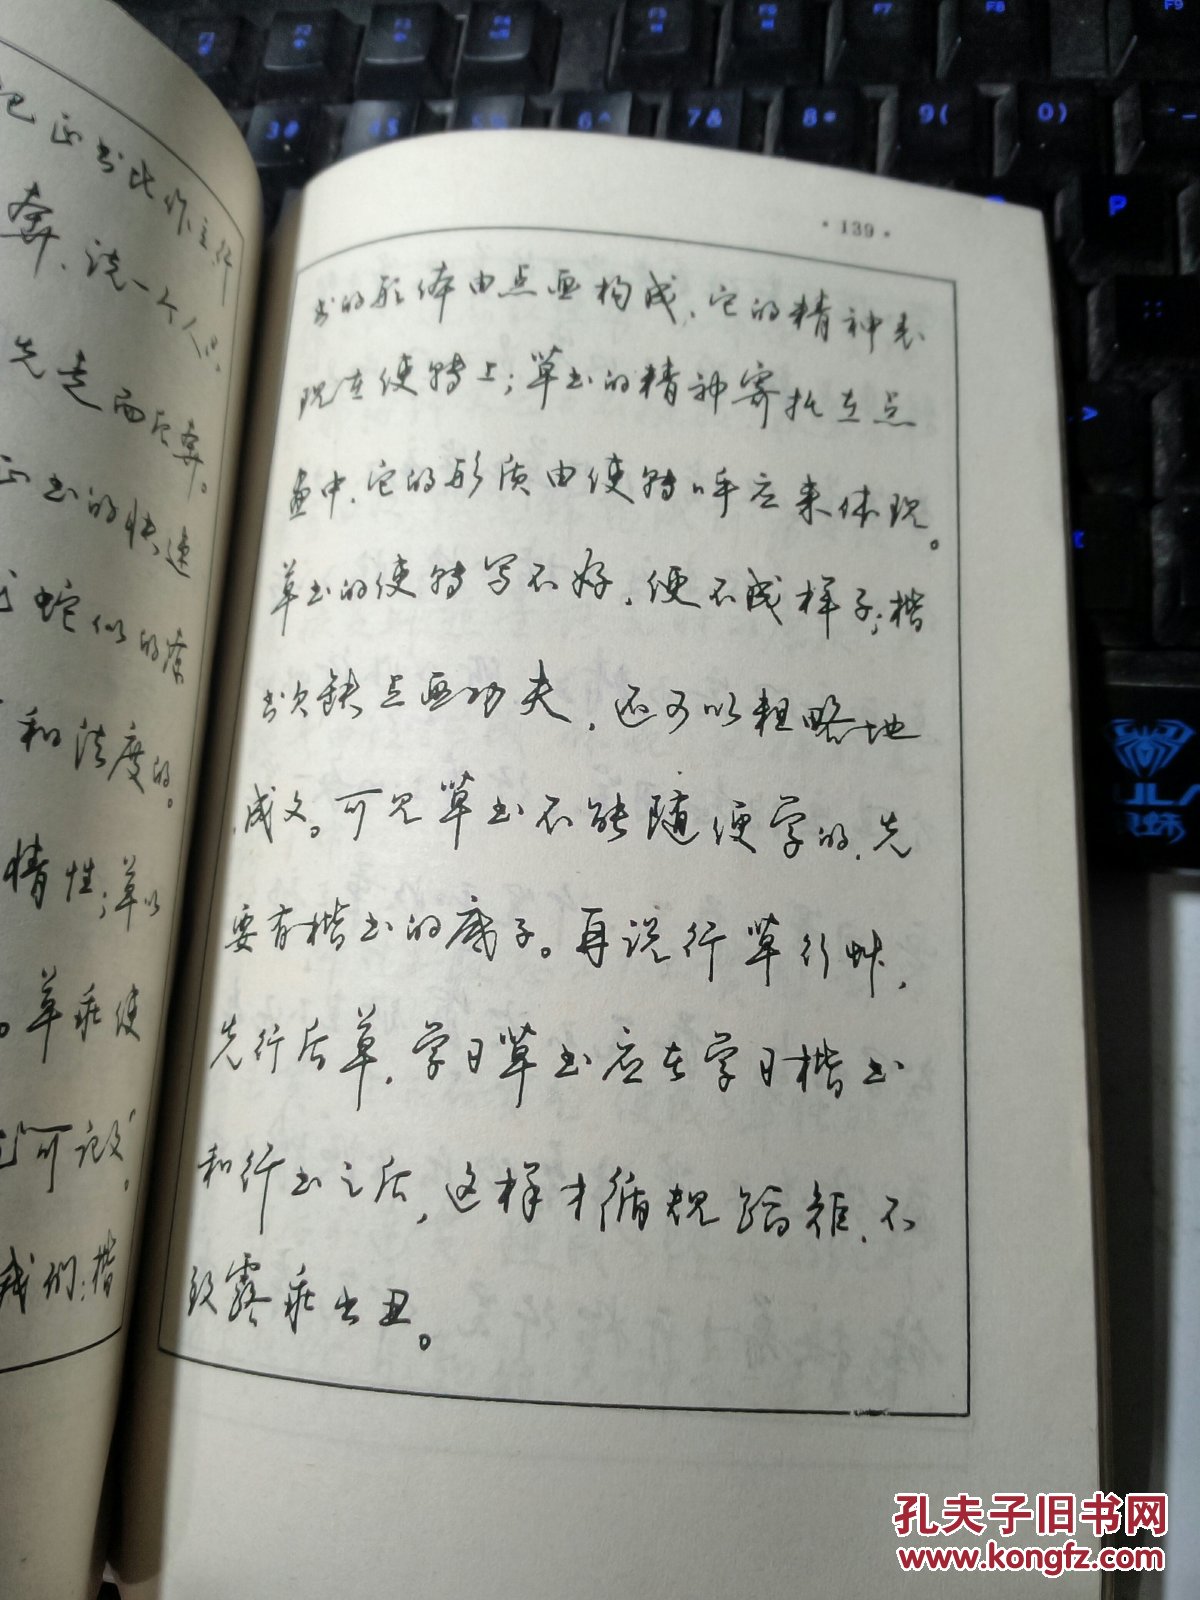 记正书比作立行
奔，说一个人只
先走而后奔。
正书的快速
蛇似的
和法度的。
情性；草以
。草乖使
可记文。
我们：楷
·139·
书的形体由点画构成，它的精神表
现在使转上；草书的精神寄托在点
画中，它的形质由使转呼应来体现。
草书的使转写不好，便不成样子；楷
书欠缺点画功夫，还可以粗略地
成文。可见草书不能随便学的，先
要有楷书的底子。再说行草行草，
先行后草，学习草书应在学习楷书
和行书之后，这样才循规蹈矩，不
致露乖出丑。
F1
F2
F3
F4
F5
F6
F7
F8
F9
3#
4$
5%
6^
7&
8*
9(
0)
P
孔夫子旧书网
www.kongfz.com